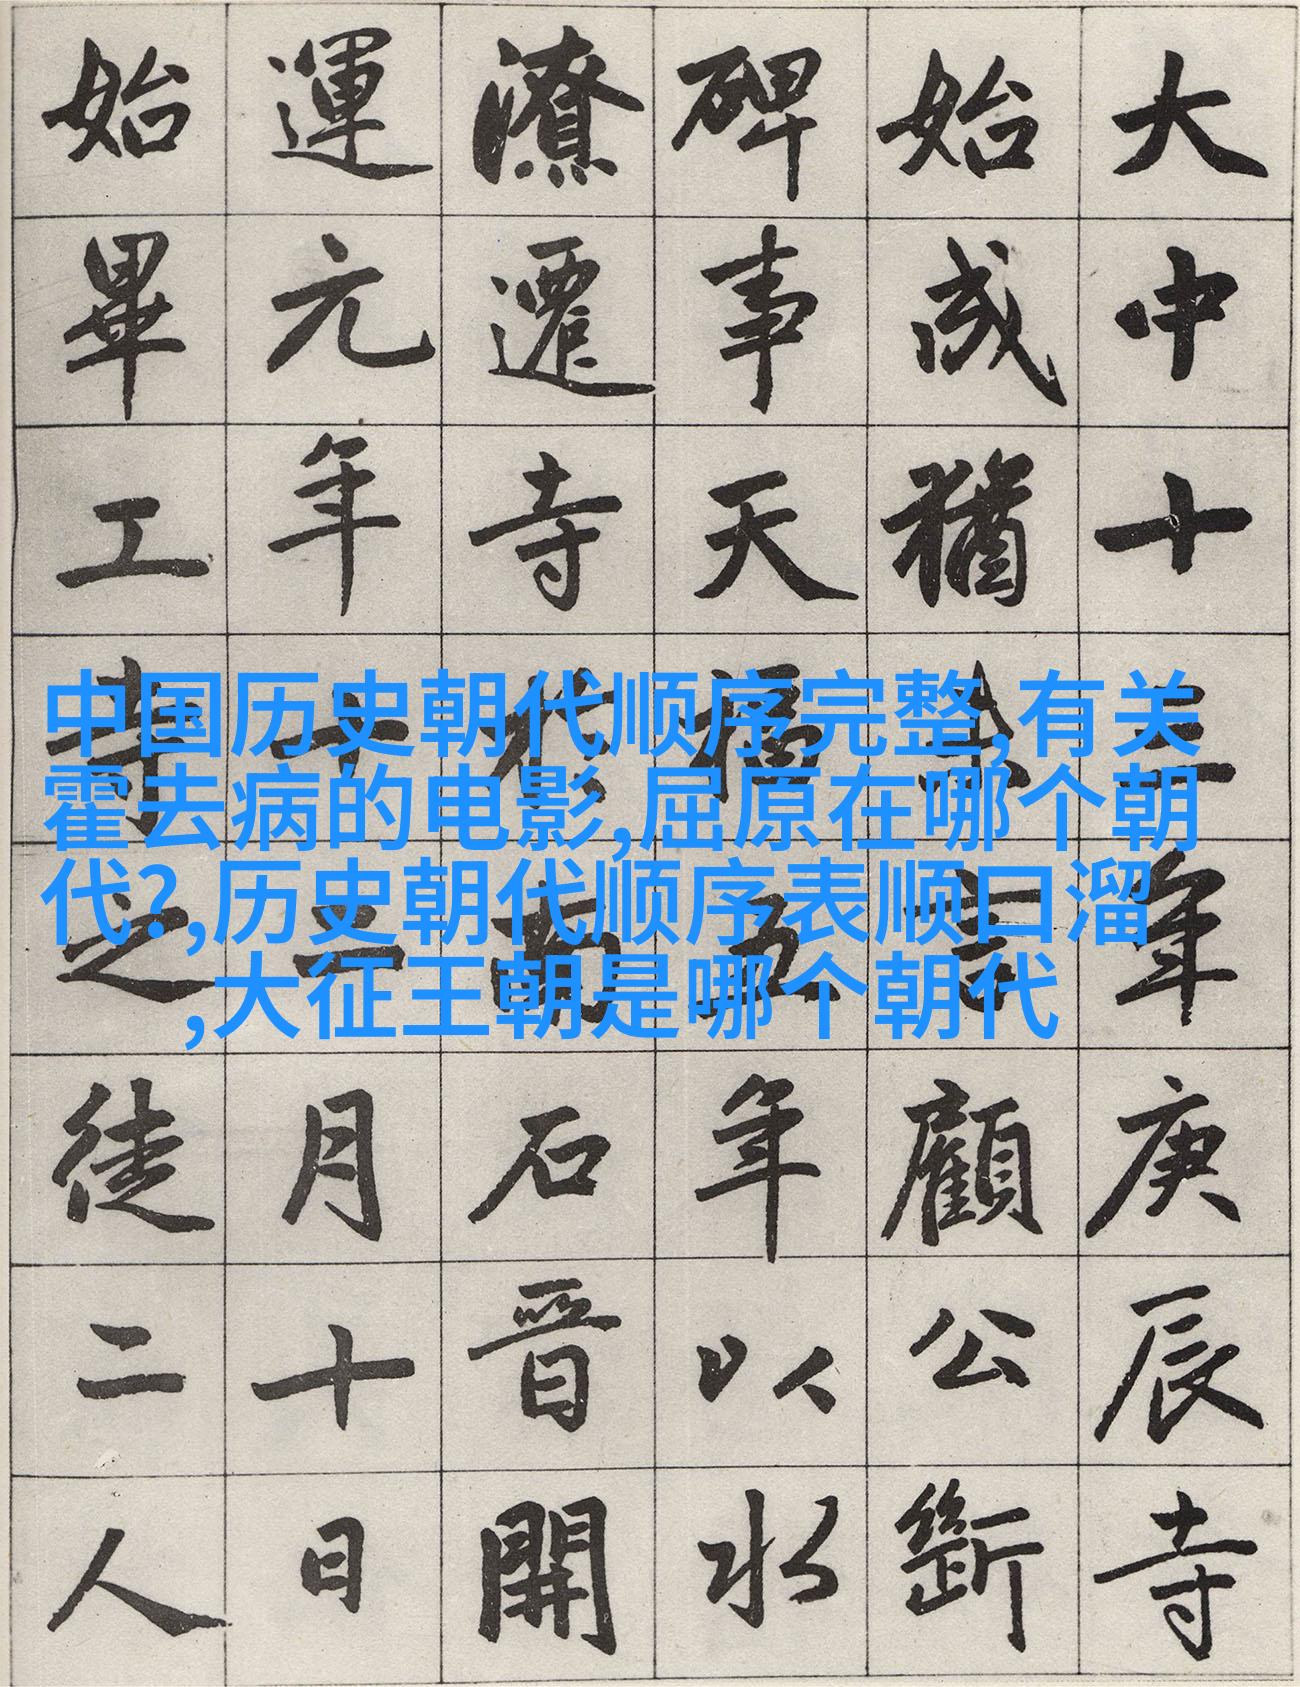 大中十三年庚辰寺
始成猶言顧公斷
碑事天福五年以水
潦遷寺於石晉開
運元年十二月十日
始畢工寺之徒二人
中国历史朝代顺序完整,有关
霍去病的电影,屈原在哪个朝
代?,历史朝代顺序表顺口溜
,大征王朝是哪个朝代